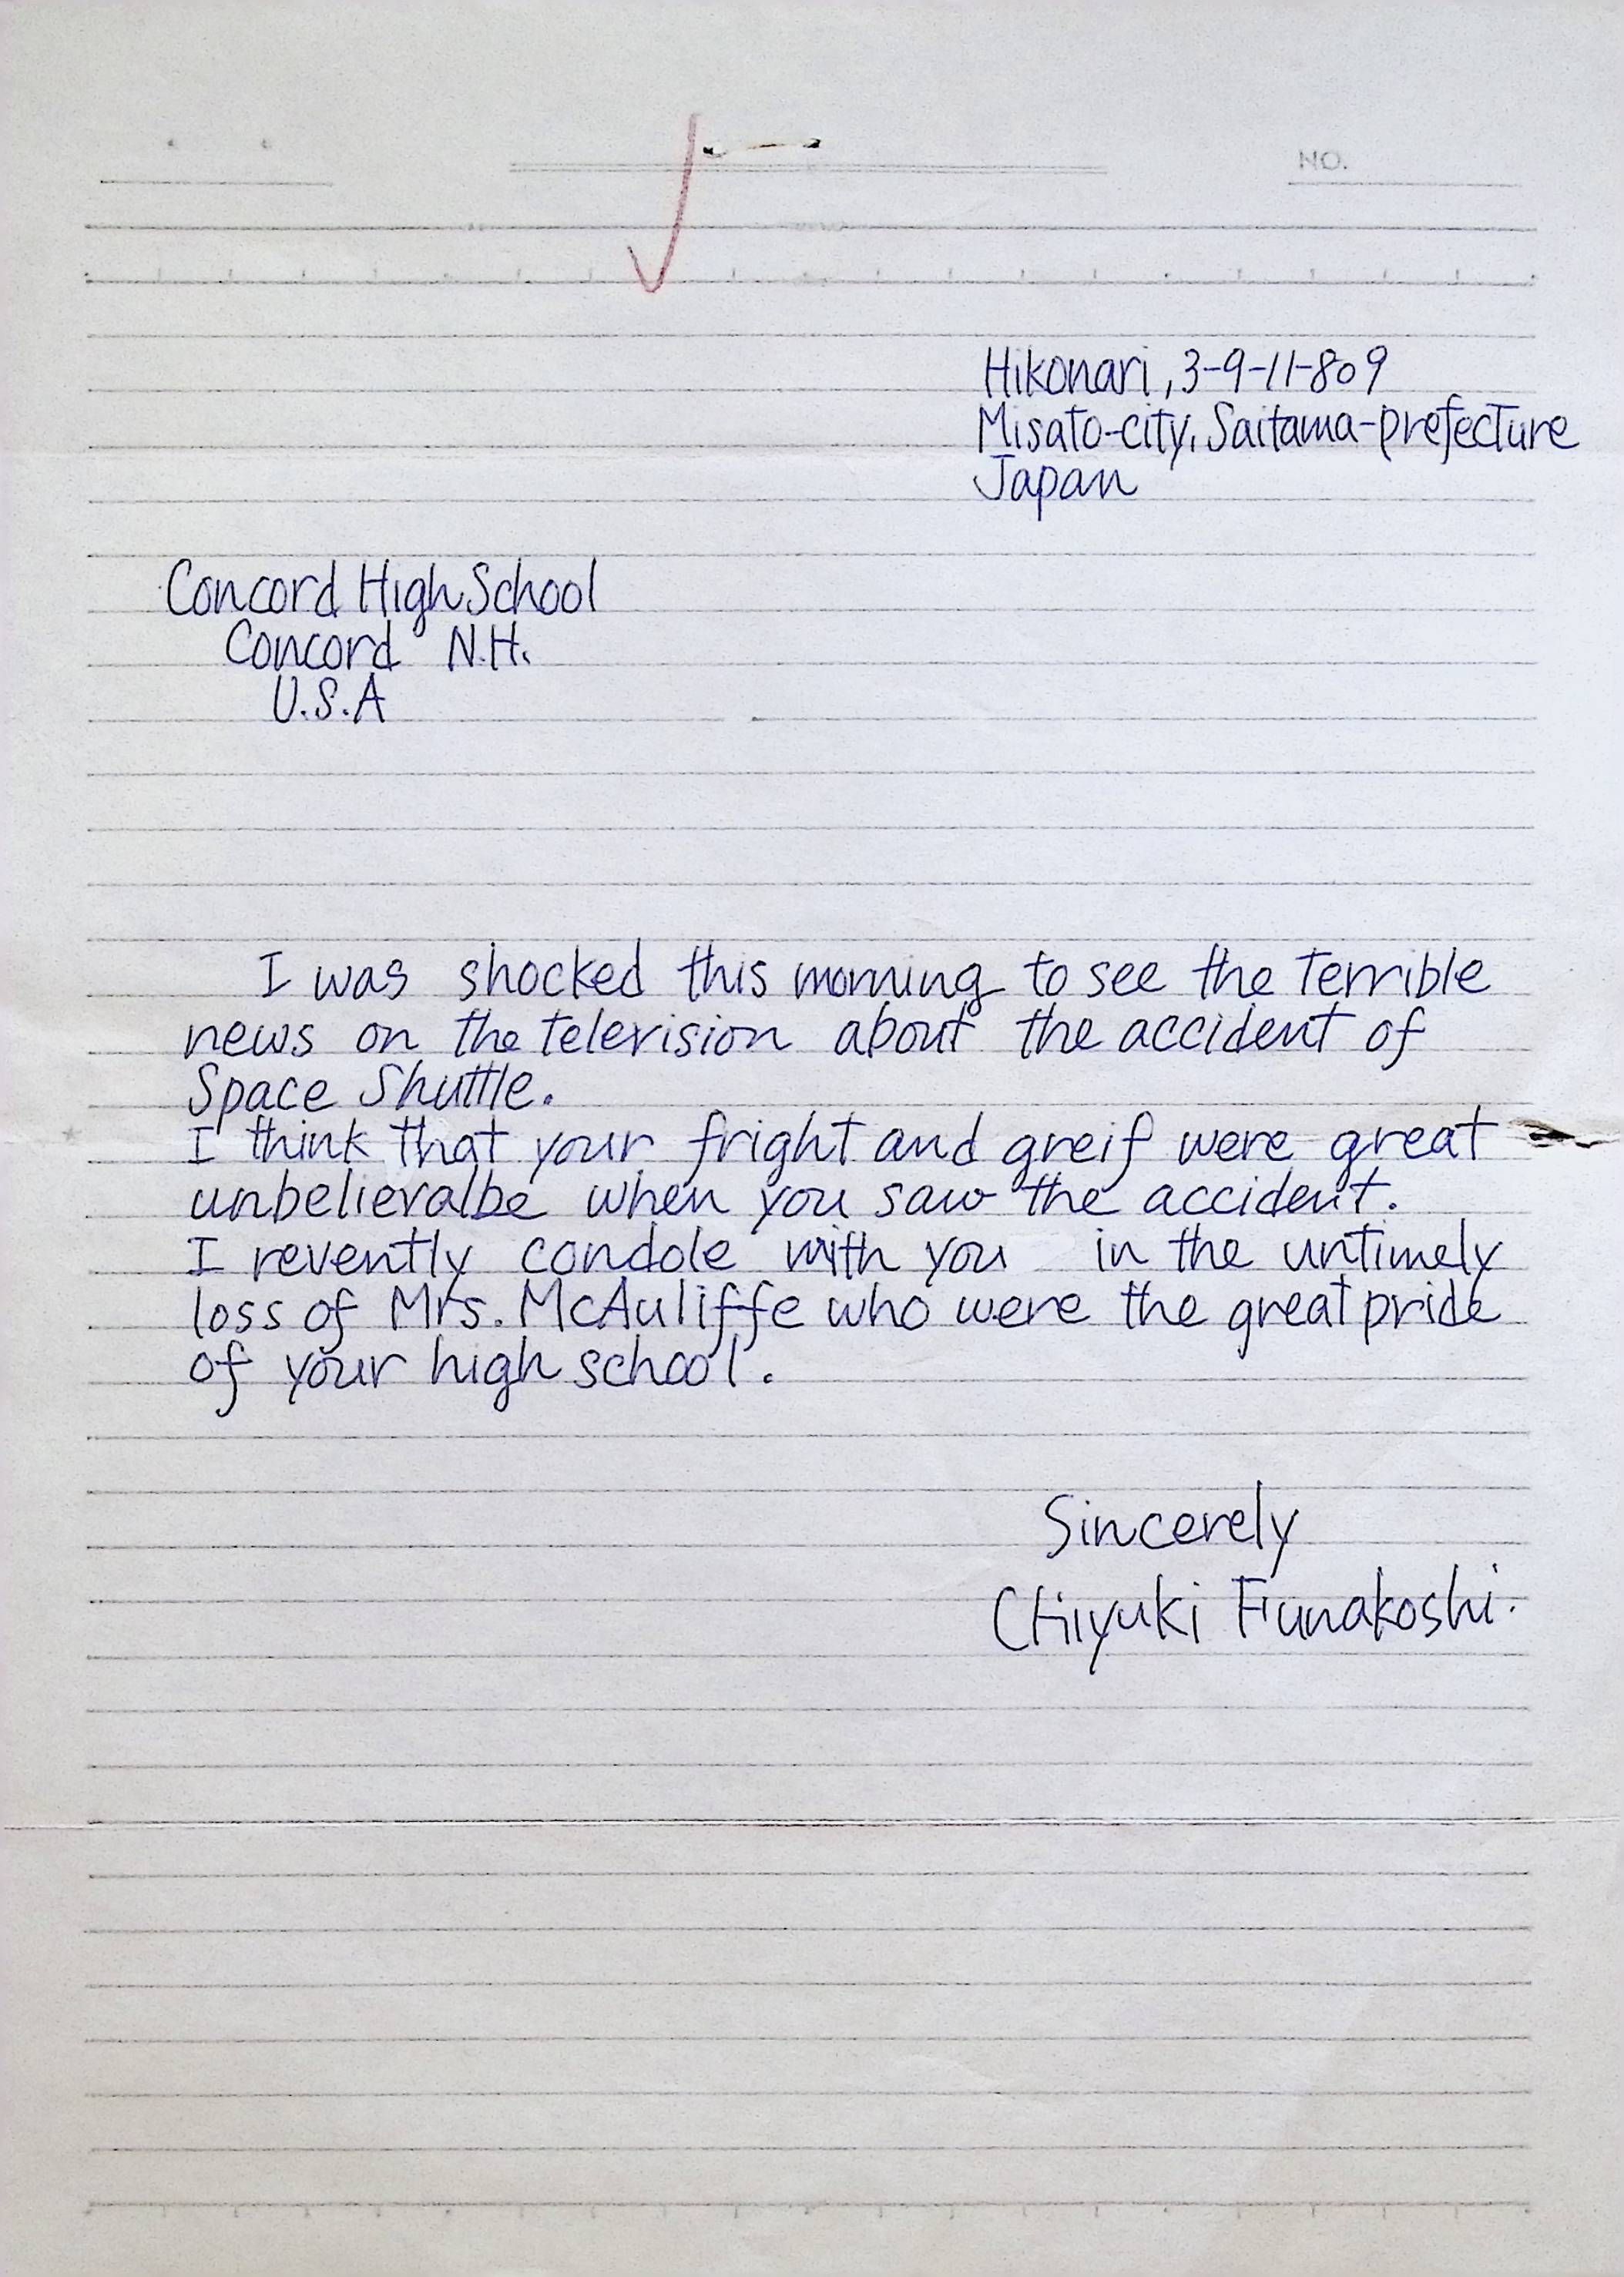 NO.
Hikonari, 3-9-11-809
Misato-city, Saitama-prefecture
Japan
Concord High School
Concord N.H.
U.S.A
I was shocked this morning to see the terrible
news on the television about the accident of
Space Shuttle.
I think that your fright and greif were great
unbelievalbe when you saw the accident.
I revently condole with you in the untimely
loss of Mrs. McAuliffe who were the great pride
of your high school.
Sincerely
Chiyuki Funakoshi.